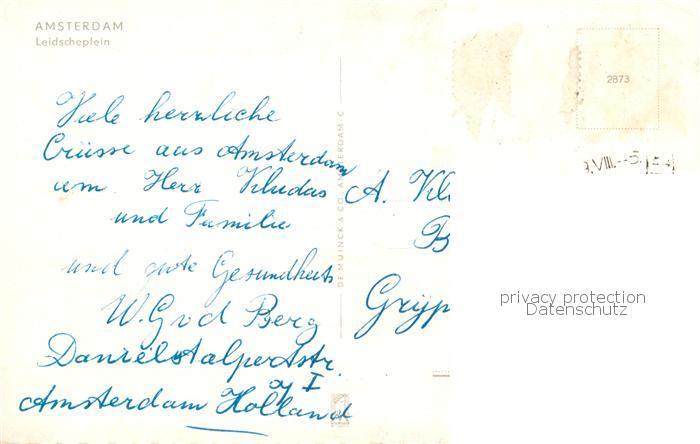 AMSTERDAM
Leidscheplein
2873
Viele herzliche
Grüsse aus Amsterdam
um Herr Kludas
und Familie
und gute Gesundheits
W. G v d Berg
Daniël Stalpertstr.
Amsterdam Holland
A. Kl
B
Gryp
DE MUINCK & CO. AMSTERDAM-C
privacy protection
Datenschutz